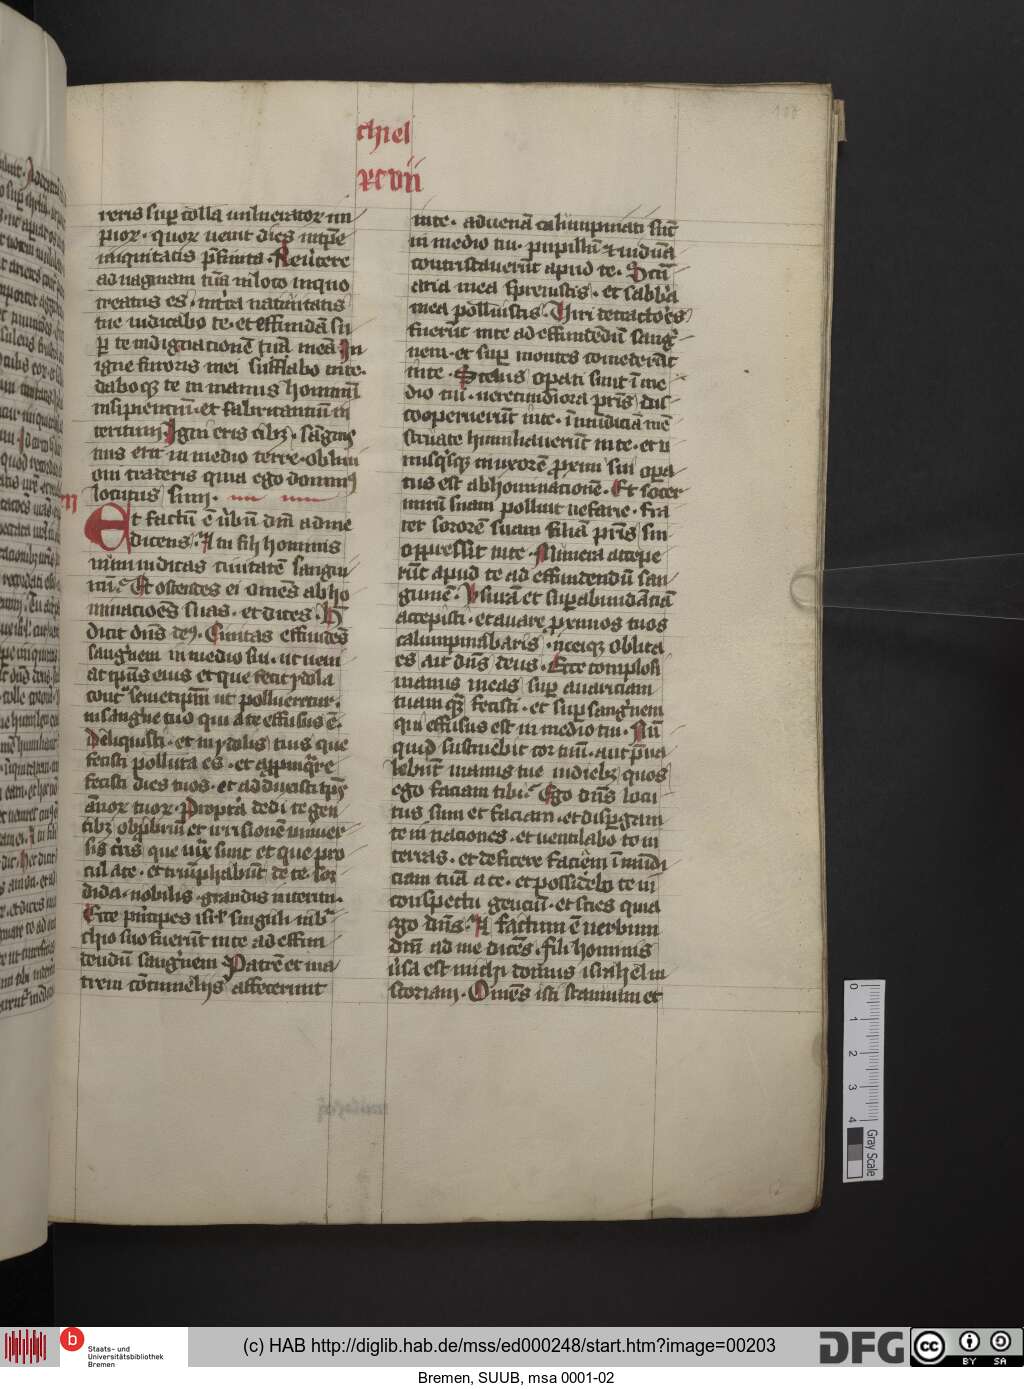 chiel
xcvii
100
reris sup colla vulneratoꝝ im
pioꝝ · quoꝝ venit dies in tꝑe
iniquitatis p̄finita · Reũtere
ad vaginam tuā in loco in quo
creatus es · in tr̄a natiuitatis
tue iudicabo te · et effundā su
ꝑ te indignationē tuā meā In
igne furoris mei sufflabo in te ·
daboqꝫ te in manus hominū
insipientiū · et fabricantiuū in
teritum · Igni eris cibꝫ · sāgͥs
nus erit in medio terre · obliui
oni traderis quia ego dominꝰ
locutus sum ·
Et factū ē ũbū dn̄i ad me
dicens · A tu fili hominis
nūm iudicas ciuitatē sangui
nū · Et ostendes ei omēs abho
minacioēs suas · et dices · H
dicit dn̄s deꝰ · Ciuitas effūdēs
saugͥnem in medio sui · ut veni
at tꝑus eius et que fecit ydola
cont͛ semetip̄m ut pollueretur ·
in sangͥne tuo qui a te effusus ē ·
Deliquisti · et in ydolis tuis que
fecisti polluta es · et appinq̄re
fecisti dies tuos · et adduxisti tꝑs
annoꝝ tuoꝝ · Propt̄a dedi te gen
tibꝫ obp̄briū et irrisionē vniuer
sis tr̄is que iux̄ sunt et que pro
cul a te · et triūphabūt de te · sor
dida · nobilis · grandis interitu ·
Ecce pn̄cipes isrl̄ singuli in b͛
chio suo fuerūt in te ad effun
dendū saugͥnem Patrē et ma
trem cōtumelijs affecerunt
in te · aduenā calumpniati sūt
in medio tui · pupillū ⁊ viduā
contristauerūt apud te · Sctū
aria mea spreuistis · et sabb̄a
mea polluistis · Viri detractoēs
fuerūt in te ad effundēdū saugͥ
nem · et super montes comederūt
in te · Scelus oꝑati sunt ī me
dio tui · verecundiora pr̄is dis
cooperuerūt in te · īmūdiciā mē
struate humiliauerūt in te · et v
nusqͥsqꝫ in vxorē proximi sui oꝑa
tus est abhominacionē · Et socer
nurū suam polluit nefarie · Fra
ter sororē suam filiā pr̄is sui
oppressit in te · Munera accepe
rūt apud te ad effundendū san
guinē · Vsurā et superabūdāciā
accepisti · et auare proximos tuos
calumpniabaris · meiqꝫ oblita
es ait dn̄s deus · Ecce complosi
manus meas super auariciam
tuam quā fecisti · et super sangͥnem
qui effusus est in medio tui · Nū
quid sustinebit cor tuū · aut p̄ua
lebūt manus tue in diebꝫ quos
ego faciam tibi · Ego dn̄s locu
tus sum et faciam · et disꝑgam
te in naciones · et ventilabo te in
terras · et deficere faciem īmūdi
ciam tuā a te · et possidebo te in
conspectu genciū · et scies quia
ego dn̄s · A factum ē uerbum
dn̄i ad me dicēs · fili hominis
ũsa est michi domus israhel in
scoriam · Omēs isti stannum et
0 1 2 3 4
Gray Scale
Staats- und
Universitätsbibliothek
Bremen
(c) HAB http://diglib.hab.de/mss/ed000248/start.htm?image=00203
DFG
cc BY SA
Bremen, SUUB, msa 0001-02